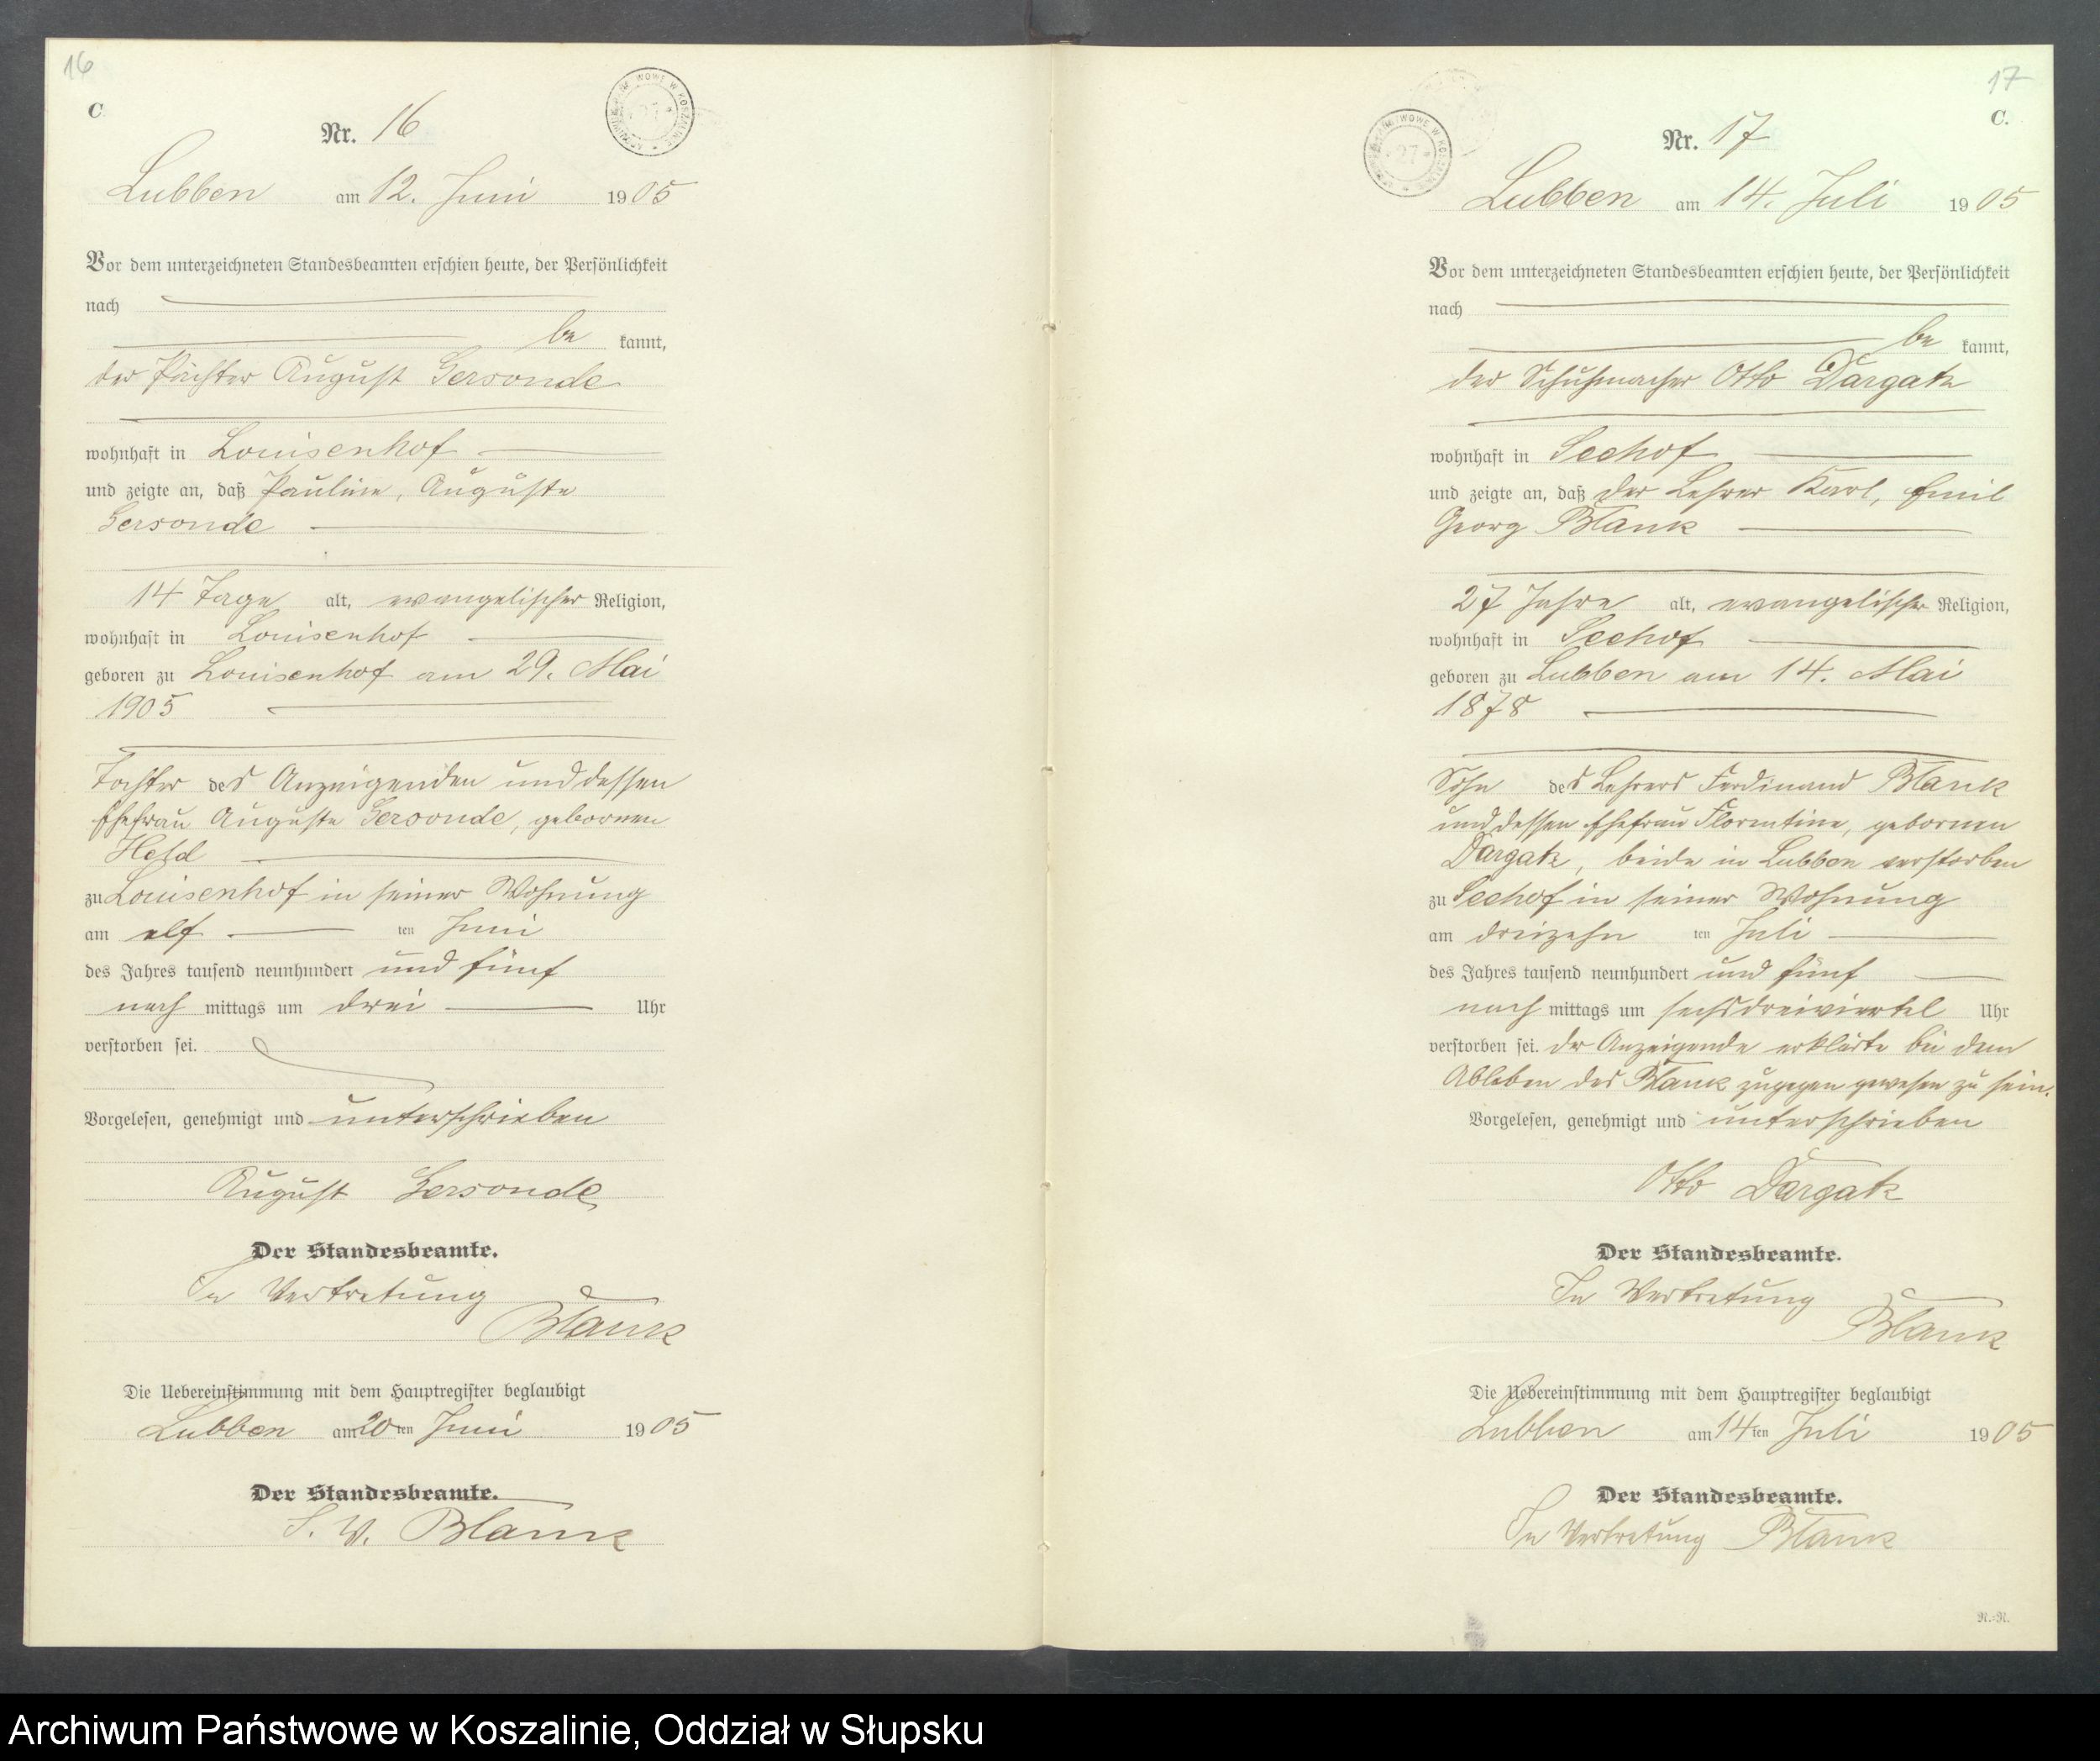 16
C.
Nr. 16
Lubben am 12. Juni 1905
Vor dem unterzeichneten Standesbeamten erschien heute, der Persönlichkeit
nach
be kannt,
der Pächter August Gersonde
wohnhaft in Louisenhof
und zeigte an, daß Pauline, Auguste
Gersonde
14 Tage alt, evangelischer Religion,
wohnhaft in Louisenhof
geboren zu Louisenhof am 29. Mai
1905
Tochter des Anzeigenden und dessen
Ehefrau Auguste Gersonde, geborenen
Held
zu Louisenhof in seiner Wohnung
am elf ten Juni
des Jahres tausend neunhundert und fünf
nach mittags um drei Uhr
verstorben sei.
Vorgelesen, genehmigt und unterschrieben
August Gersonde
Der Standesbeamte.
In Vertretung
Blank
Die Uebereinstimmung mit dem Hauptregister beglaubigt
Lubben am 20ten Juni 1905
Der Standesbeamte.
I. V. Blank
17
C.
Nr. 17
Lubben am 14. Juli 1905
Vor dem unterzeichneten Standesbeamten erschien heute, der Persönlichkeit
nach
be kannt,
der Schuhmacher Otto Dargatz
wohnhaft in Seehof
und zeigte an, daß der Lehrer Karl, Emil
Georg Blank
27 Jahre alt, evangelischer Religion,
wohnhaft in Seehof
geboren zu Lubben am 14. Mai
1878
Sohn des Lehrers Ferdinand Blank
und dessen Ehefrau Florentine, geborenen
Dargatz, beide in Lubben verstorben
zu Seehof in seiner Wohnung
am dreizehn ten Juli
des Jahres tausend neunhundert und fünf
nach mittags um sechsdreiviertel Uhr
verstorben sei. Der Anzeigende erklärte bei dem
Ableben des Blank zugegen gewesen zu sein.
Vorgelesen, genehmigt und unterschrieben
Otto Dargatz
Der Standesbeamte.
In Vertretung
Blank
Die Uebereinstimmung mit dem Hauptregister beglaubigt
Lubben am 14ten Juli 1905
Der Standesbeamte.
In Vertretung Blank
N.=N.
Archiwum Państwowe w Koszalinie, Oddział w Słupsku